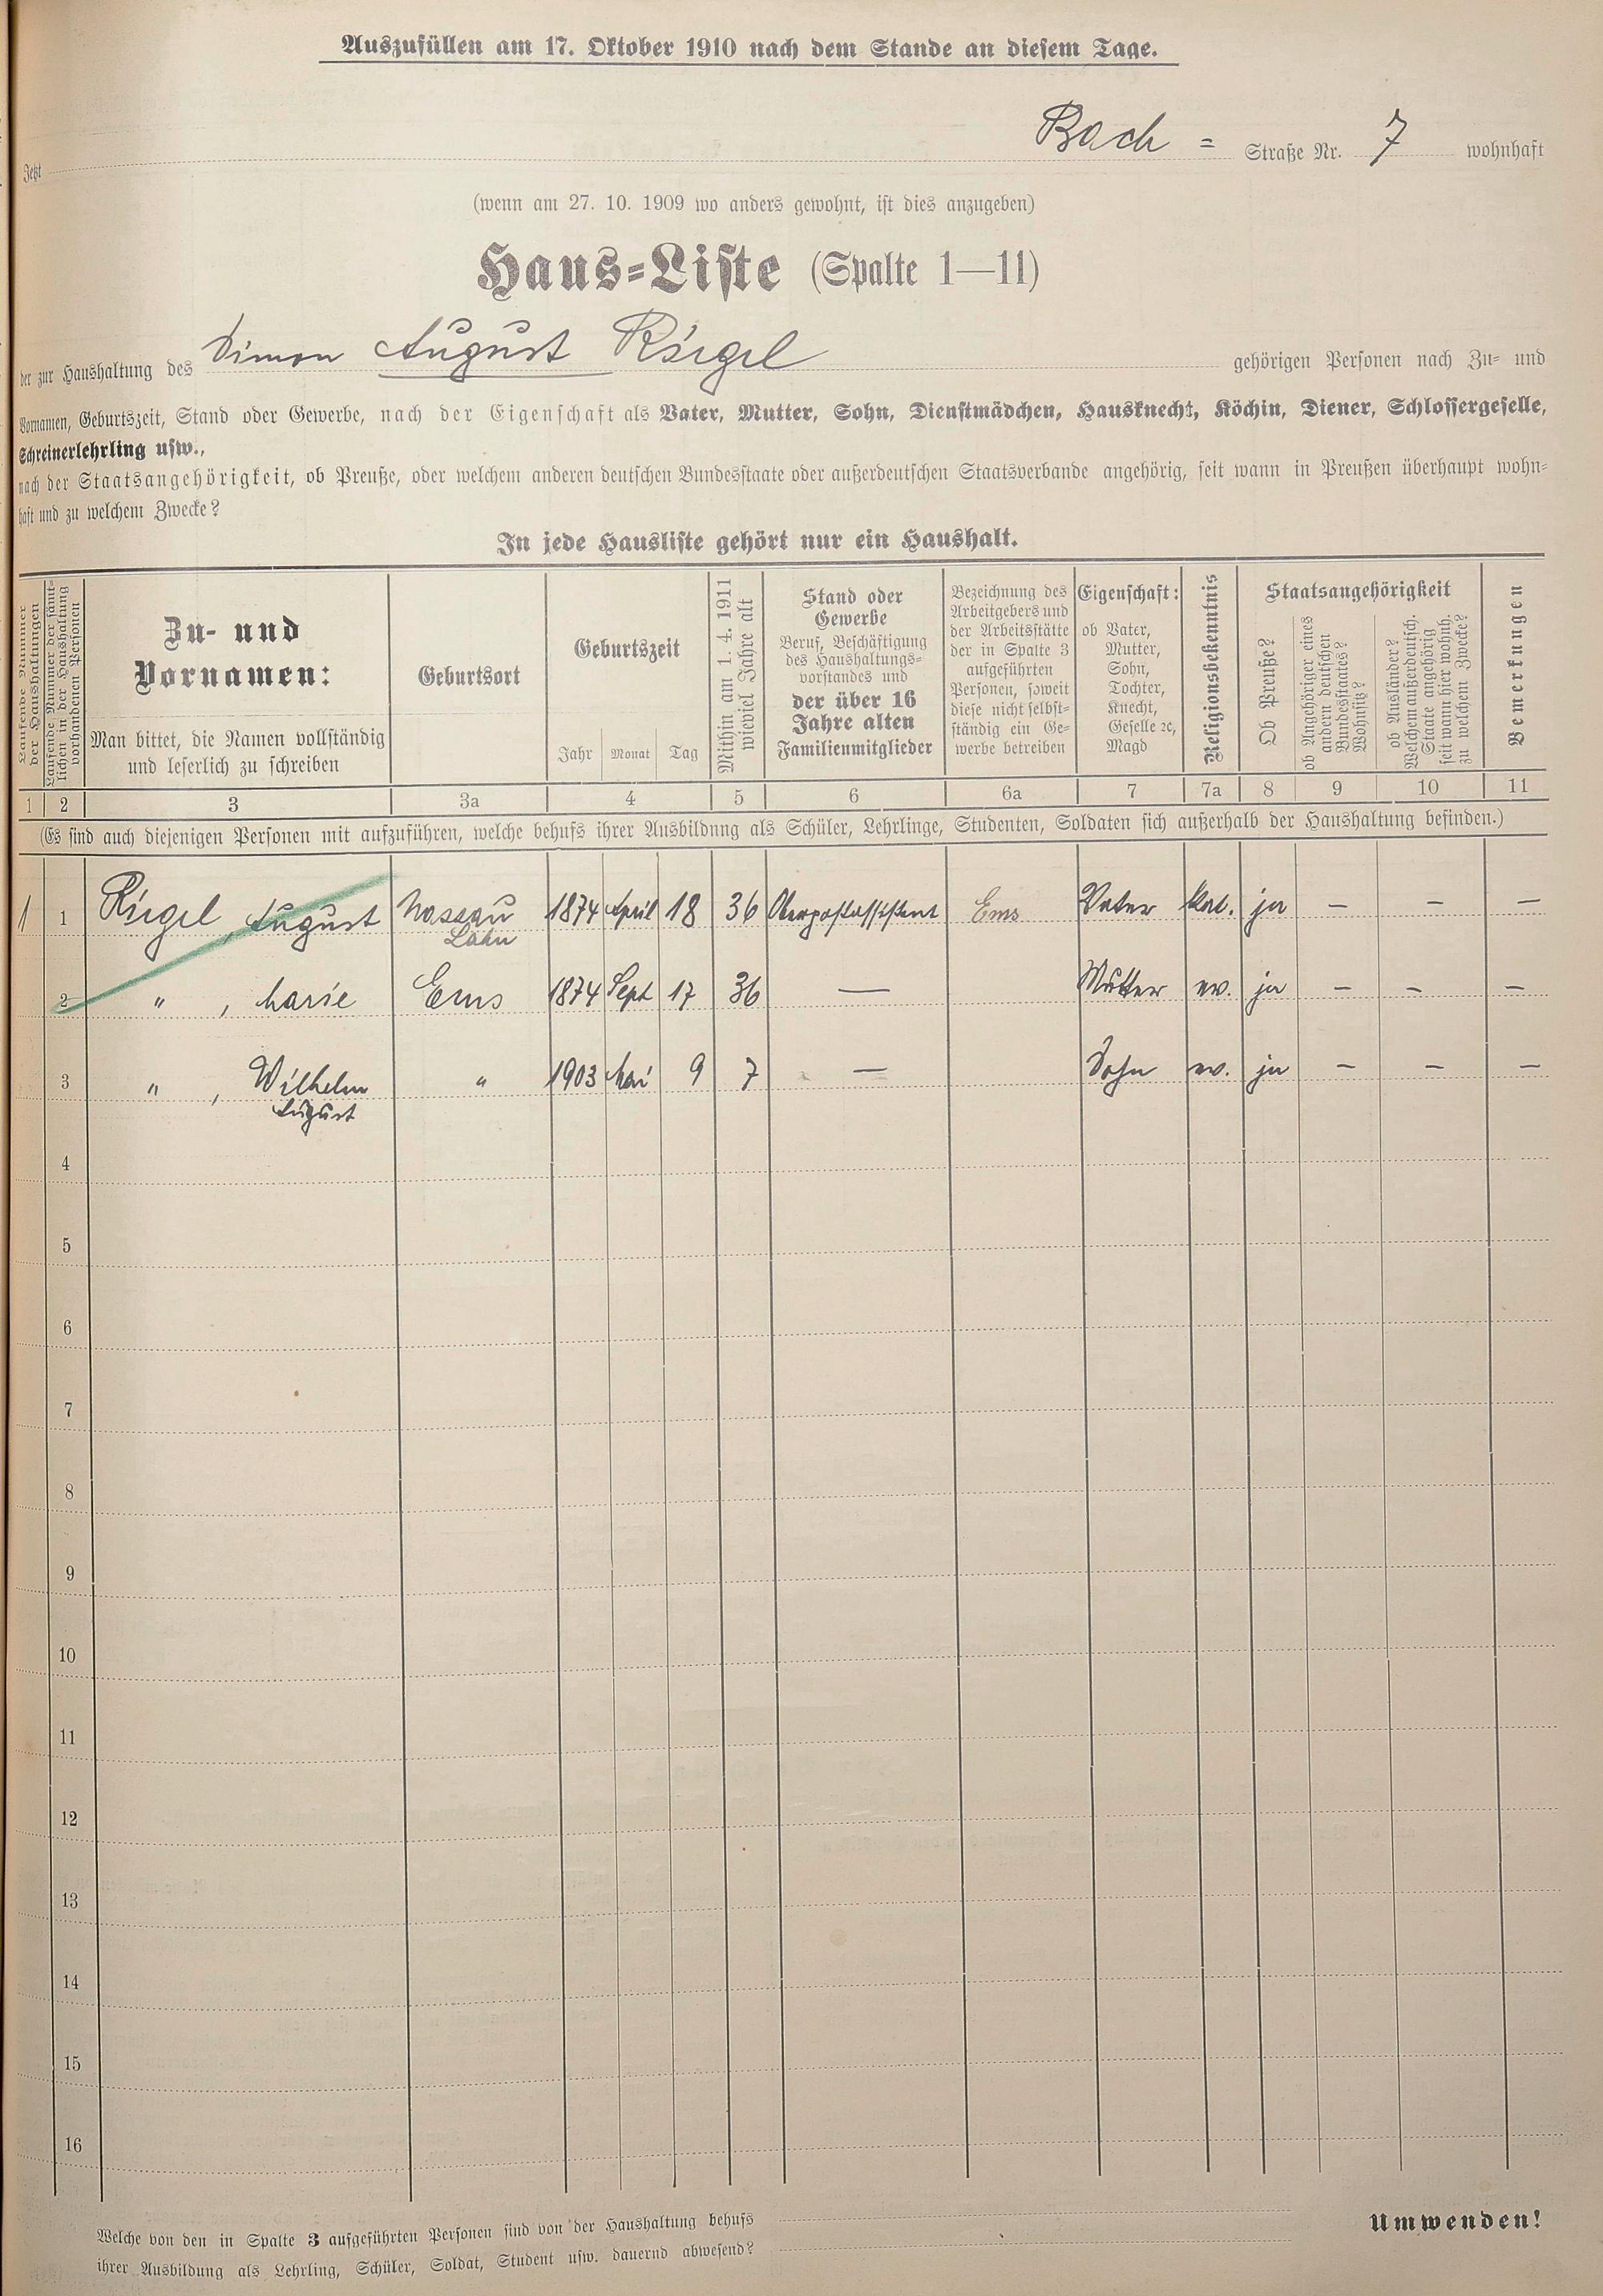 Auszufüllen am 17. Oktober 1910 nach dem Stande an diesem Tage.
Jetzt Bach = Straße Nr. 7 wohnhaft
(wenn am 27. 10. 1909 wo anders gewohnt, ist dies anzugeben)
Haus-Liste (Spalte 1—11)
der zur Haushaltung des Simon August Riegel gehörigen Personen nach Zu- und
Vornamen, Geburtszeit, Stand oder Gewerbe, nach der Eigenschaft als Vater, Mutter, Sohn, Dienstmädchen, Hausknecht, Köchin, Diener, Schlossergeselle,
Schreinerlehrling usw.,
nach der Staatsangehörigkeit, ob Preuße, oder welchem anderen deutschen Bundesstaate oder außerdeutschen Staatsverbande angehörig, seit wann in Preußen überhaupt wohn-
haft und zu welchem Zwecke?
In jede Hausliste gehört nur ein Haushalt.
Laufende Nummer
der Haushaltungen
Laufende Nummer der sämt-
lichen in der Haushaltung
vorhandenen Personen
Zu- und
Vornamen:
Man bittet, die Namen vollständig
und leserlich zu schreiben
Geburtsort
Geburtszeit
Jahr Monat Tag
Mithin am 1. 4. 1911
wieviel Jahre alt
Stand oder
Gewerbe
Beruf, Beschäftigung
des Haushaltungs-
vorstandes und
der über 16
Jahre alten
Familienmitglieder
Bezeichnung des
Arbeitgebers und
der Arbeitsstätte
der in Spalte 3
aufgeführten
Personen, soweit
diese nicht selbst-
ständig ein Ge-
werbe betreiben
Eigenschaft:
ob Vater,
Mutter,
Sohn,
Tochter,
Knecht,
Geselle ꝛc,
Magd
Religionsbekenntnis
Staatsangehörigkeit
Ob Preuße?
ob Angehöriger eines
andern deutschen
Bundesstaates?
Wohnsitz?
ob Ausländer?
Welchem außerdeutsch.
Staate angehörig
seit wann hier wohnh.
zu welchem Zwecke?
Bemerkungen
1 2 3 3a 4 5 6 6a 7 7a 8 9 10 11
(Es sind auch diejenigen Personen mit aufzuführen, welche behufs ihrer Ausbildung als Schüler, Lehrlinge, Studenten, Soldaten sich außerhalb der Haushaltung befinden.)
1 1 Riegel, August Nassau 1874 April 18 36 Oberpostassistent Ems Vater kat. ja — — —
Lahn
2 " , Marie Ems 1874 Sept 17 36 — Mutter ev. ja — — —
3 " , Wilhelm " 1903 Mai 9 7 — Sohn ev. ja — — —
August
4
5
6
7
8
9
10
11
12
13
14
15
16
Welche von den in Spalte 3 aufgeführten Personen sind von der Haushaltung behufs
ihrer Ausbildung als Lehrling, Schüler, Soldat, Student usw. dauernd abwesend?
Umwenden!